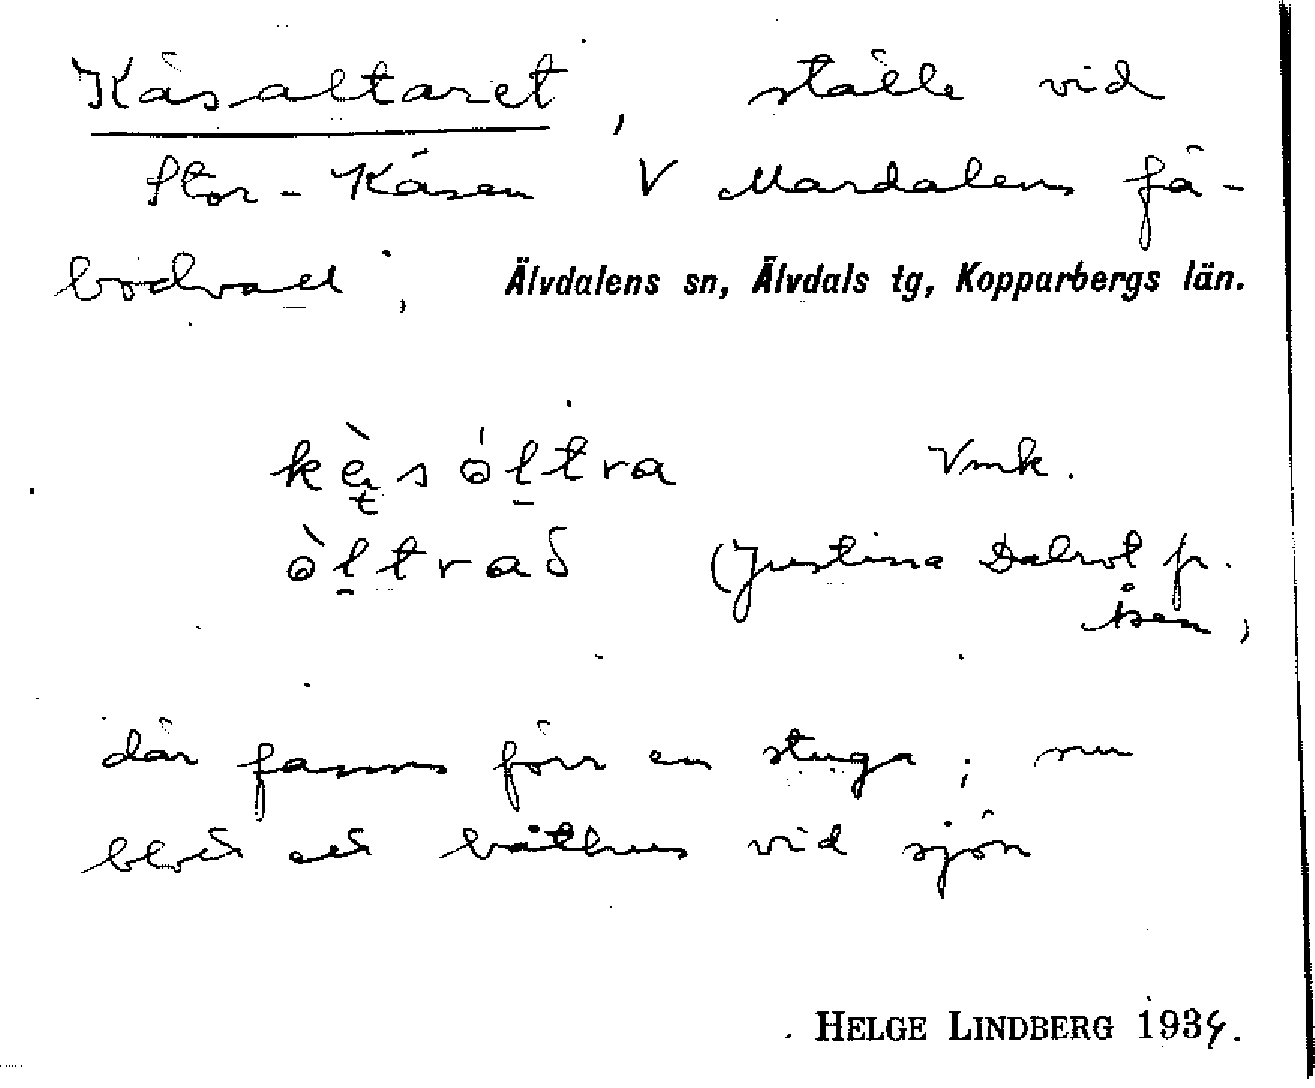 Käsaltaret, ställe vid
Stor-Käsen V Mardalens fä-
bodvall;
Älvdalens sn, Älvdals tg, Kopparbergs län.
Vmk.
(Justina Dalrot fr.
Åsen,
där fanns förr en stuga; nu
blott ett båthus vid sjön
HELGE LINDBERG 1934.